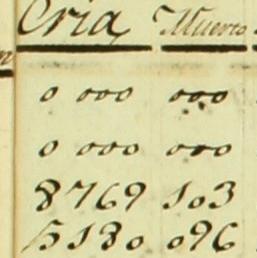 Cria Muerto
0 000 000
0 000 000
8769 103
5180 096